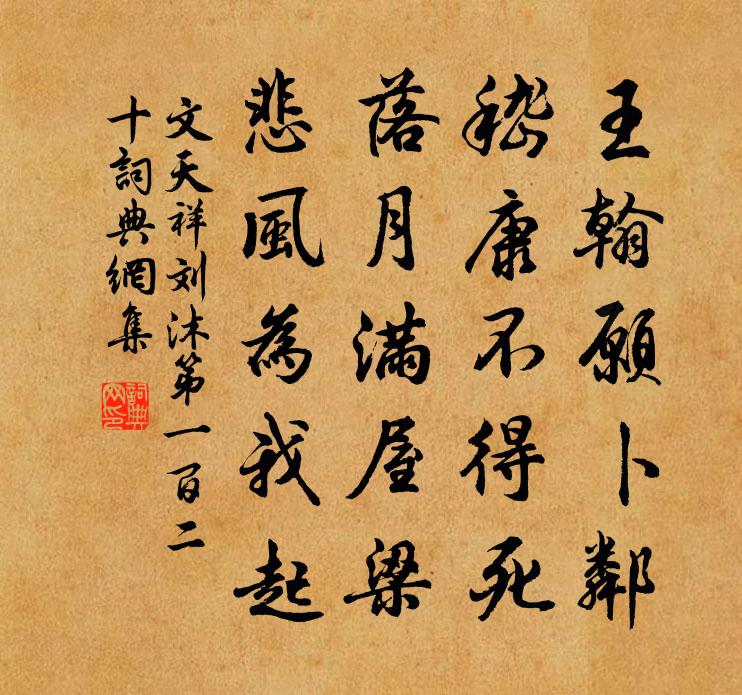 王翰願卜鄰
嵇康不得死
落月滿屋梁
悲風為我起
文天祥刘沐第一百二
十詞典網集
詞典网印